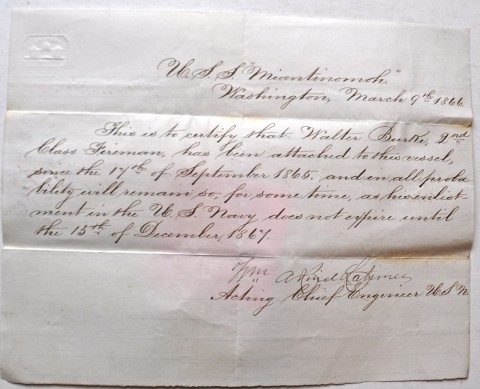 U. S. S. "Miantinomoh,"
Washington, March 9th 1866.
This is to certify that Walter Burke, 2nd
Class Fireman, has been attached to this vessel,
since the 17th of September 1865, and in all proba-
bility will remain so, for some time, as his enlist-
ment in the U. S. Navy, does not expire until
the 15th of December, 1867.
Wm
Acting Chief Engineer U.S.N.